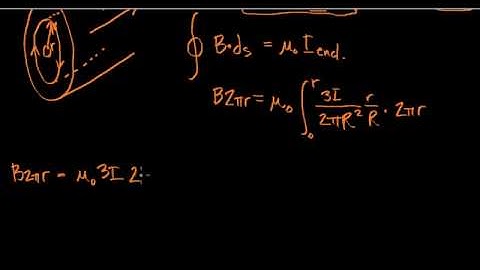 dr
∮ B•ds = μ₀ I end.
B2πr = μ₀ ∫₀ʳ 3I/2πR² r/R · 2πr
B2πr = μ₀ 3I 2